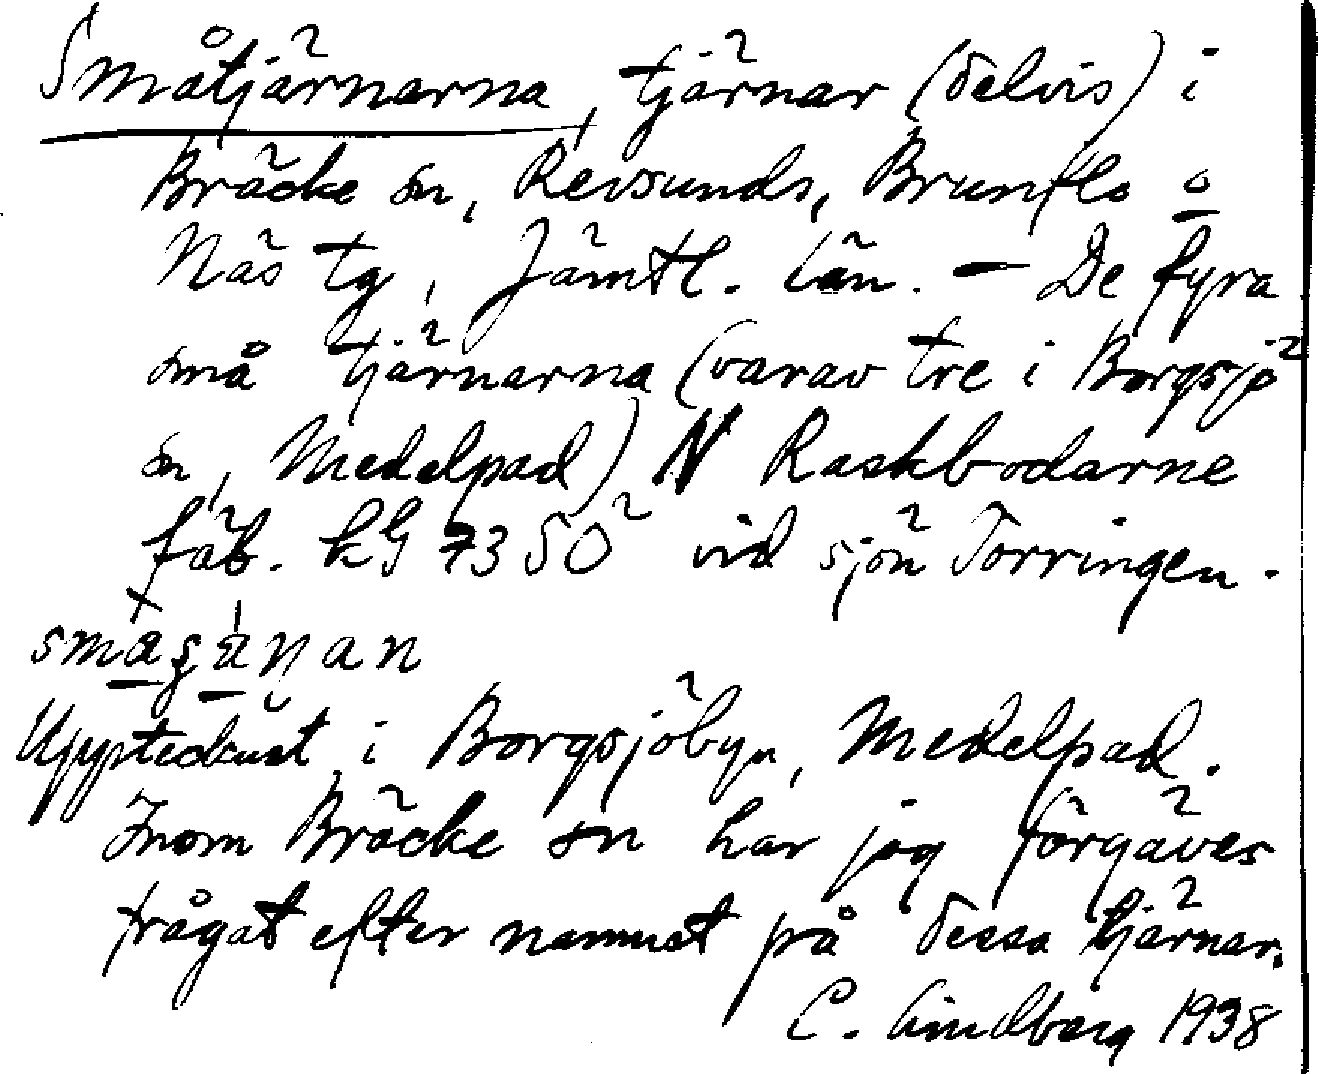 Småtjärnarna, tjärnar (delvis) i
Bräcke sn, Revsunds, Brunflo o
Näs tg, Jämtl. län. – De fyra
små tjärnarna (varav tre i Borgsjö
sn, Medelpad) N Raskbodarne
fäb. kG 73 SO vid sjön Torringen.
Upptecknat i Borgsjöbyn, Medelpad.
Inom Bräcke sn har jag förgäves
frågat efter namnet på dessa tjärnar.
C. Lindberg 1938